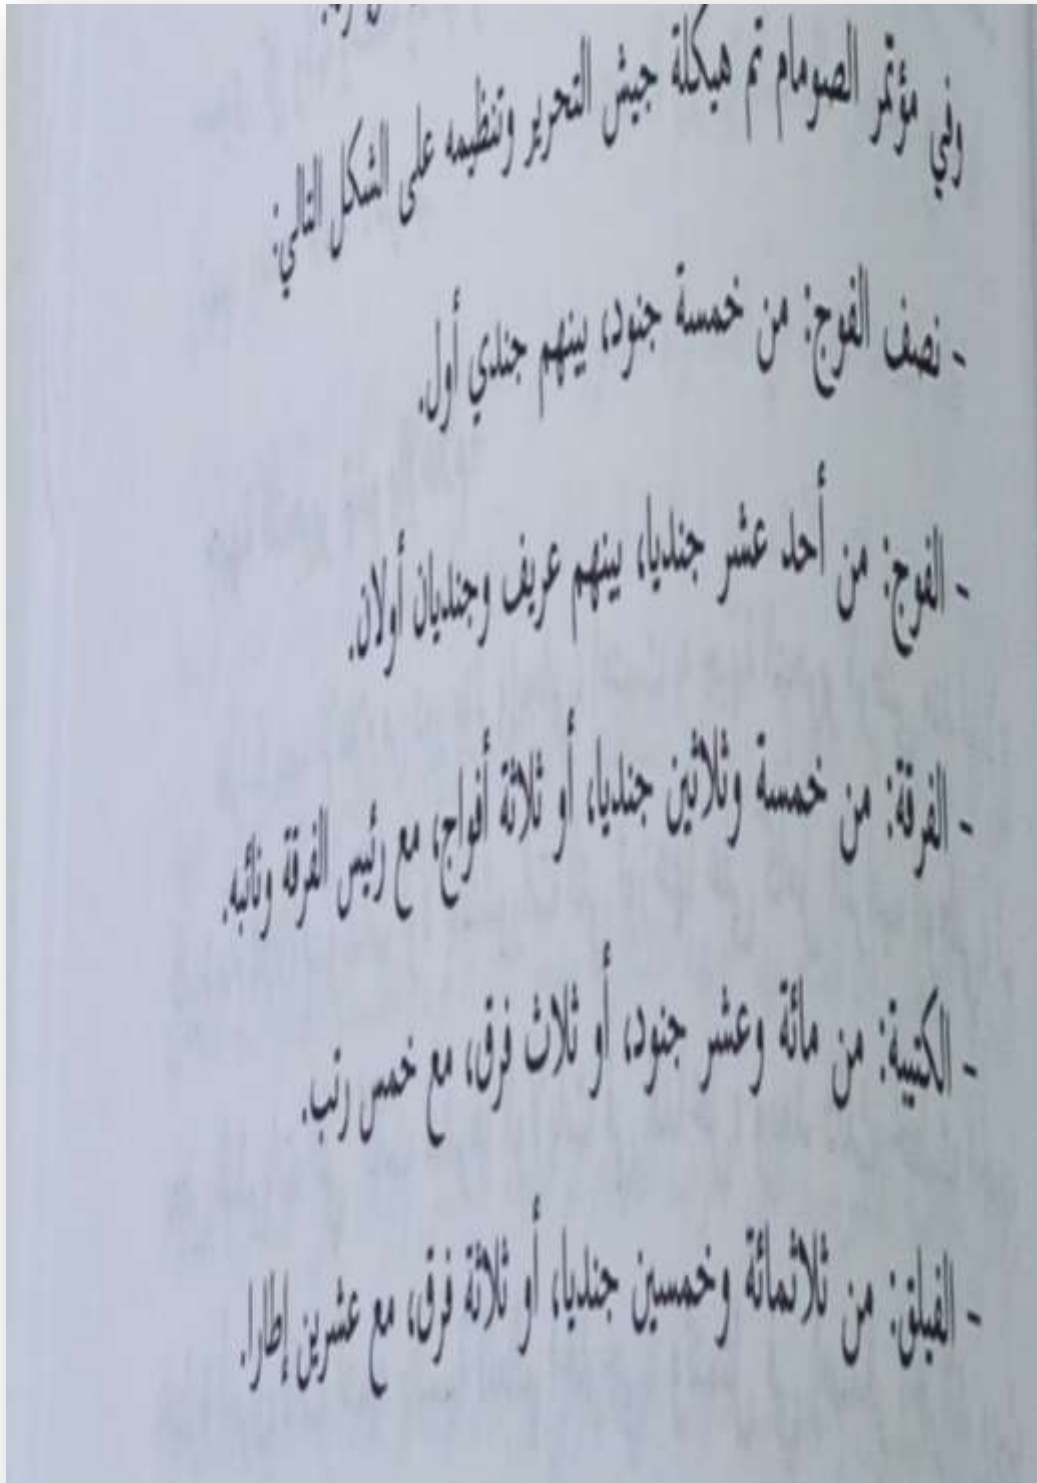 وفي مؤتمر الصومام تم هيكلة جيش التحرير وتنظيمه على الشكل التالي:
- نصف الفوج: من خمسة جنود، بينهم جندي أول.
- الفوج: من أحد عشر جنديا، بينهم عريف وجنديان أولان.
- الفرقة: من خمسة وثلاثين جنديا، أو ثلاثة أفواج، مع رئيس الفرقة ونائبه.
- الكتيبة: من مائة وعشر جنود، أو ثلاث فرق، مع خمس رتب.
- الفيلق: من ثلاثمائة وخمسين جنديا، أو ثلاثة فرق، مع عشرين إطارا.